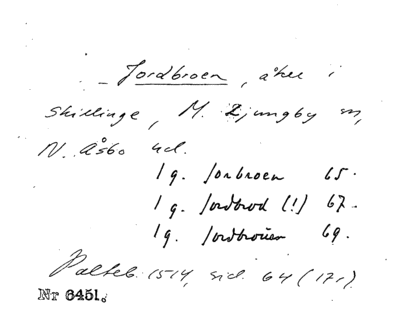 Jordbroen, åker i
Skillinge, M. Ljungby sn,
N. Åsbo hd.
1 g. Jorbroen 65.
1 g. Jordbrod (!) 67.
1 g. Jordbrouen 69.
Palteb. 1514, sid. 64 (17r)
Nr 6451.